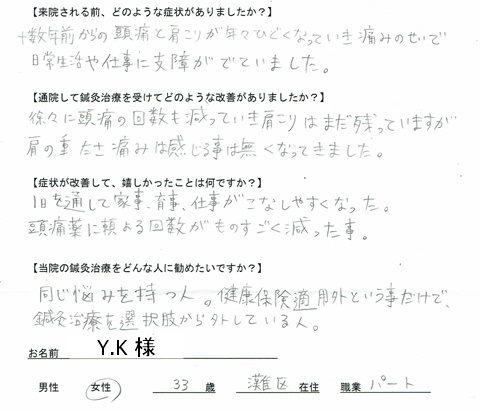 【来院される前、どのような症状がありましたか？】
十数年前からの頭痛と肩こりが年々ひどくなっていき痛みのせいで
日常生活や仕事に支障がでていました。
【通院して鍼灸治療を受けてどのような改善がありましたか？】
徐々に頭痛の回数も減っていき肩こりはまだ残っていますが
肩の重たさ痛みは感じる事は無くなってきました。
【症状が改善して、嬉しかったことは何ですか？】
1日を通して家事、育事、仕事がこなしやすくなった。
頭痛薬に頼よる回数がものすごく減った事。
【当院の鍼灸治療をどんな人に勧めたいですか？】
同じ悩みを持つ人。健康保険適用外という事だけで、
鍼灸治療を選択肢から外している人。
お名前 Y.K 様
男性 女性 33 歳 灘区 在住 職業 パート